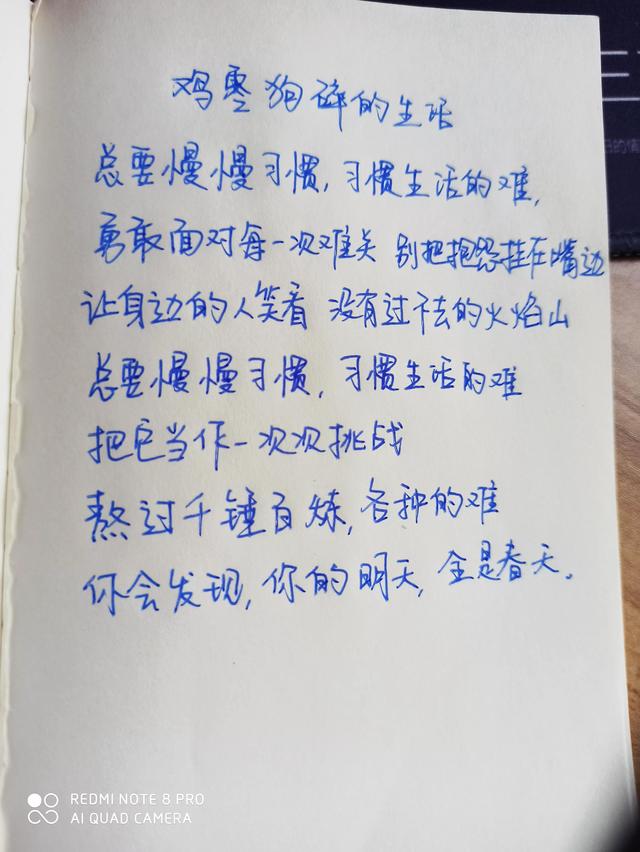 鸡零狗碎的生活
总要慢慢习惯,习惯生活的难,
勇敢面对每一次难关 别把抱怨挂在嘴边
让身边的人笑看 没有过不去的火焰山
总要慢慢习惯,习惯生活的难
把它当作一次次挑战
熬过千锤百炼,各种的难
你会发现,你的明天,全是春天。
REDMI NOTE 8 PRO
AI QUAD CAMERA